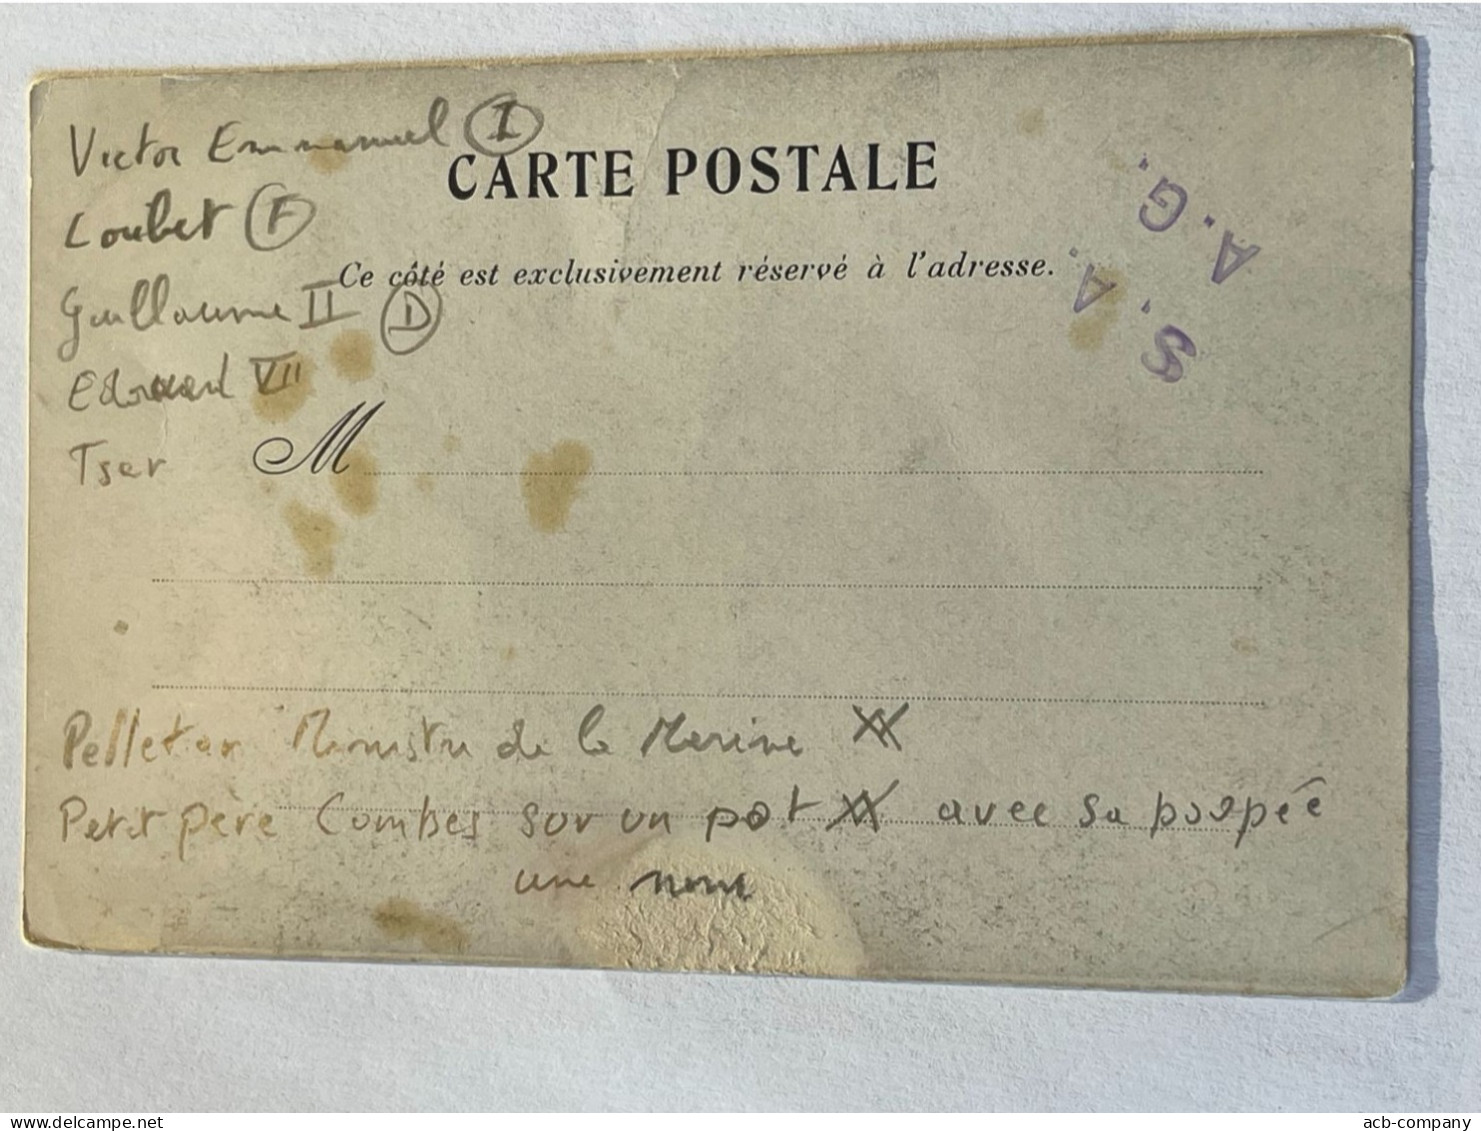 Victor Emmanuel I
CARTE POSTALE
Loubet F
Ce côté est exclusivement réservé à l'adresse.
Guillaume II D
Edouard VII
Tsar
M
A. G.
S. A.
Pelletan Ministre de la Marine XX
Petit père Combes sur un pot XX avec sa poupée
une
acb-company